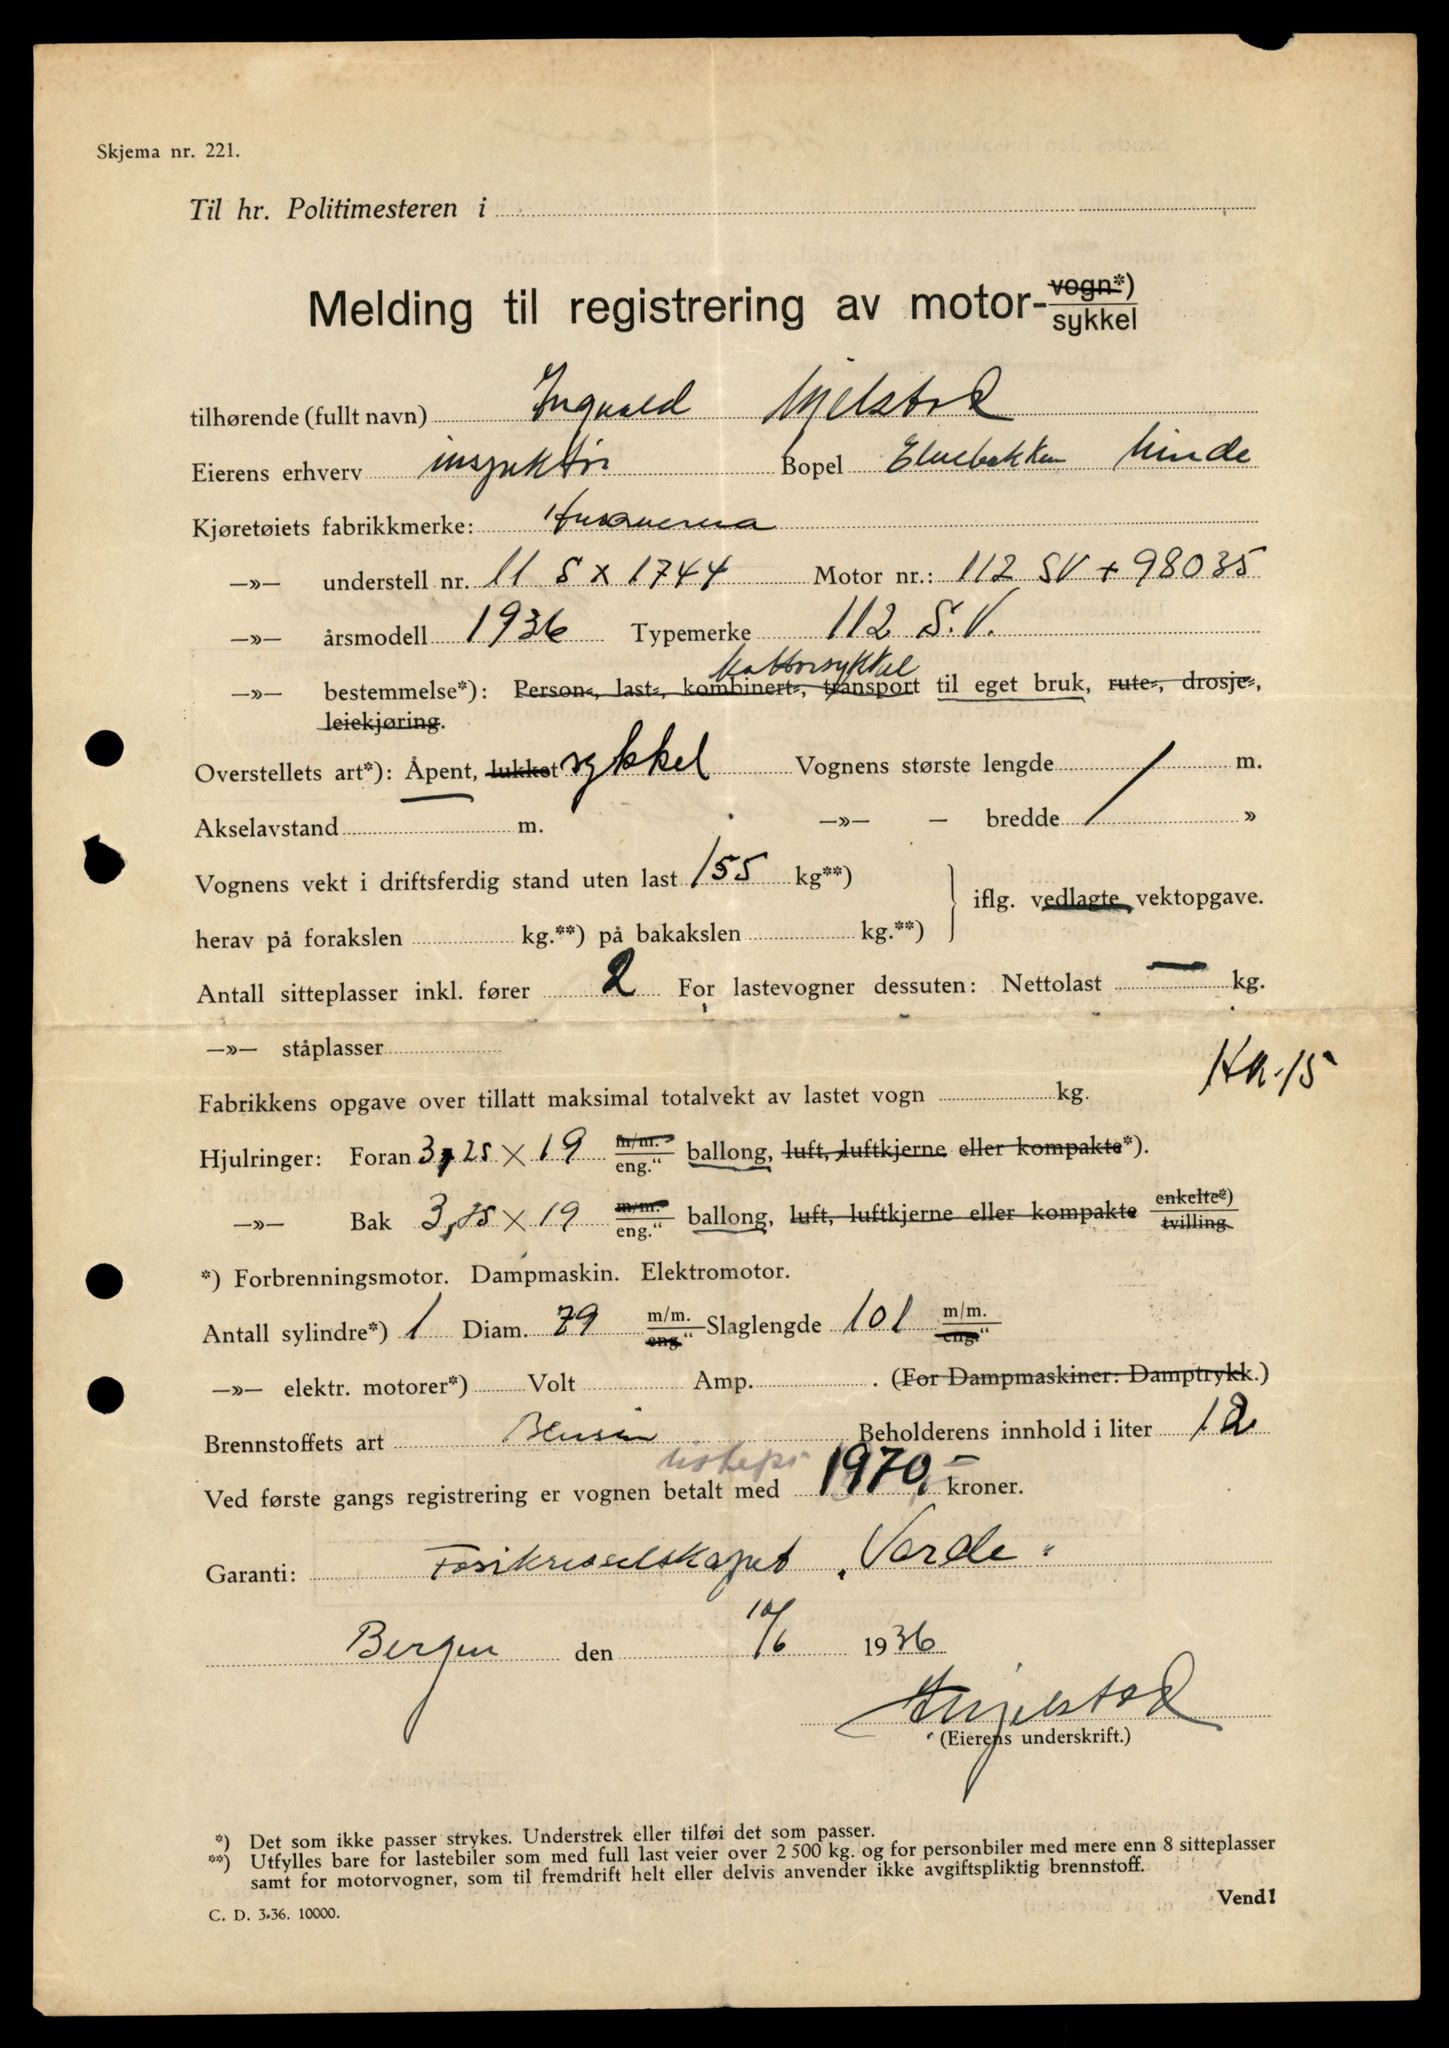 Skjema nr. 221.
Til hr. Politimesteren i
Melding til registrering av motor-vogn*)
sykkel
tilhørende (fullt navn) Ingvald Mjelstad
Eierens erhverv inspektør Bopel Elvebakken Minde
Kjøretøiets fabrikkmerke: Husqverna
—»— understell nr. 11 S X 1744 Motor nr.: 112 SV + 98035
—»— årsmodell 1936 Typemerke 112 S.V.
Mottorsykkel
—»— bestemmelse*): Person-, last-, kombinert-, transport til eget bruk, rute-, drosje-,
leiekjøring.
Overstellets art*): Åpent, lukket sykkel Vognens største lengde / m.
Akselavstand m. —»— — bredde / »
Vognens vekt i driftsferdig stand uten last 155 kg**)
iflg. vedlagte vektopgave.
herav på forakslen kg.**) på bakakslen kg.**)
Antall sitteplasser inkl. fører 2 For lastevogner dessuten: Nettolast — kg.
—»— ståplasser
Fabrikkens opgave over tillatt maksimal totalvekt av lastet vogn kg.
Hjulringer: Foran 3,25 X 19 m/m. eng." ballong, luft, luftkjerne eller kompakte*).
—»— Bak 3,25 X 19 m/m. eng." ballong, luft, luftkjerne eller kompakte enkelte*) tvilling
*) Forbrenningsmotor. Dampmaskin. Elektromotor.
Antall sylindre*) 1 Diam. 79 m/m. eng." Slaglengde 101 m/m. eng."
—»— elektr. motorer*) Volt Amp. . (For Dampmaskiner: Damptrykk.)
Brennstoffets art Bensin Beholderens innhold i liter 12
Ved første gangs registrering er vognen betalt med 1970,— kroner.
Garanti: Forsikrselskapet „Varde"
Bergen den 10/6 1936
Mjelstad
(Eierens underskrift.)
*) Det som ikke passer strykes. Understrek eller tilføi det som passer.
**) Utfylles bare for lastebiler som med full last veier over 2 500 kg. og for personbiler med mere enn 8 sitteplasser
samt for motorvogner, som til fremdrift helt eller delvis anvender ikke avgiftspliktig brennstoff.
Vend!
C. D. 3-36. 10000.